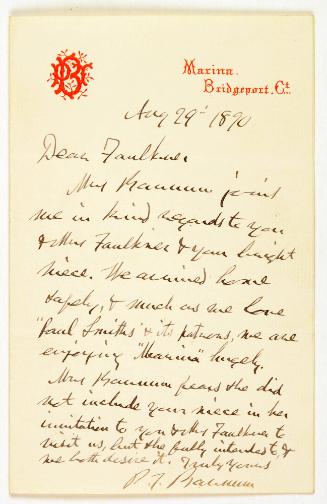 PTB
Marina.
Bridgeport, Ct.
Aug 29' 1890
Dear Faulkner
Mrs Barnum joins
me in kind regards to you
& Mrs Faulkner & your bright
niece. We arrived home
safely, & much as we love
"Paul Smiths" & its patrons, we are
enjoying "Marina" hugely.
Mrs Barnum fears she did
not include your niece in her
invitation to you & Mrs Faulkner to
visit us, but she fully intended it, &
we both desire it. Truly yours
P. T. Barnum